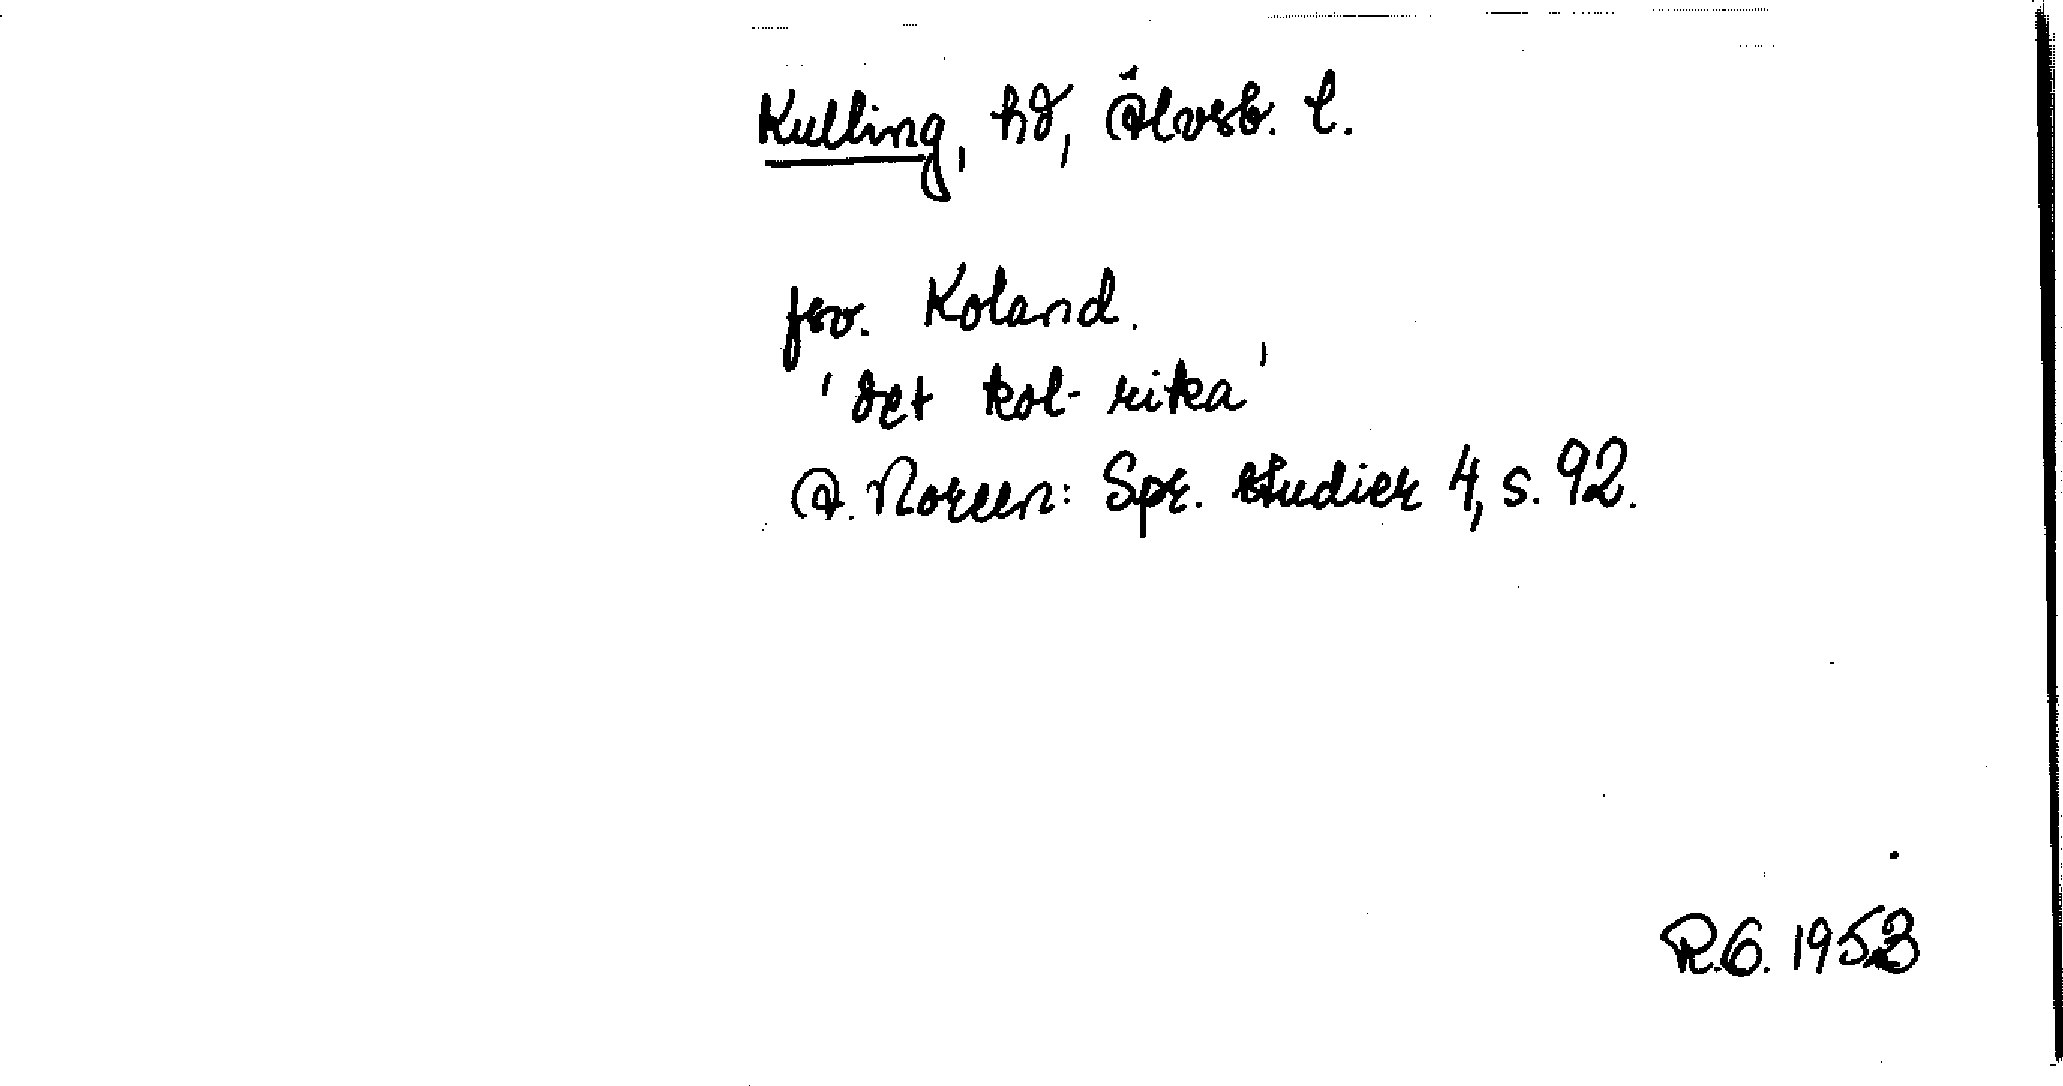 Kulling, hd, Älvsb. l.
fsv. Koland.
'det kol-rika'
A. Noreen: Spr. studier 4, s. 92.
R.G. 1953